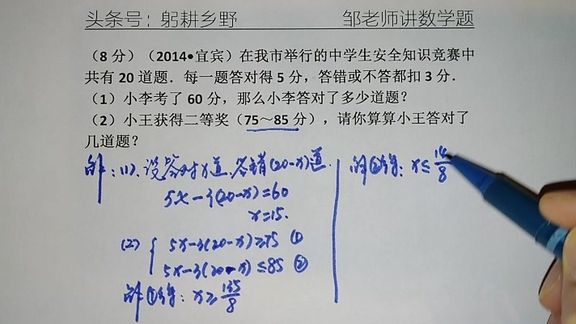 头条号：躬耕乡野
邹老师讲数学题
（8 分）（2014•宜宾）在我市举行的中学生安全知识竞赛中
共有 20 道题．每一题答对得 5 分，答错或不答都扣 3 分．
（1）小李考了 60 分，那么小李答对了多少道题？
（2）小王获得二等奖（75～85 分），请你算算小王答对了
几道题？
解：(1). 设答对x道，答错(20-x)道.
5x-3(20-x)=60
x=15.
(2) { 5x-3(20-x)≥75 ①
5x-3(20-x)≤85 ②
解①得：x≥135/8
解②得：x≤14/8